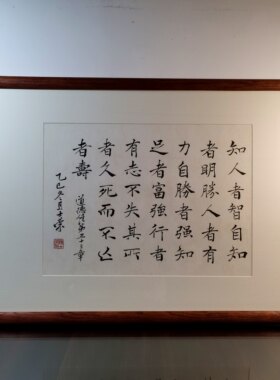 知人者智自知
者明勝人者有
力自勝者強知
足者富強行者
有志不失其所
者久死而不亡
者壽
道德經第三十三章
乙巳冬月